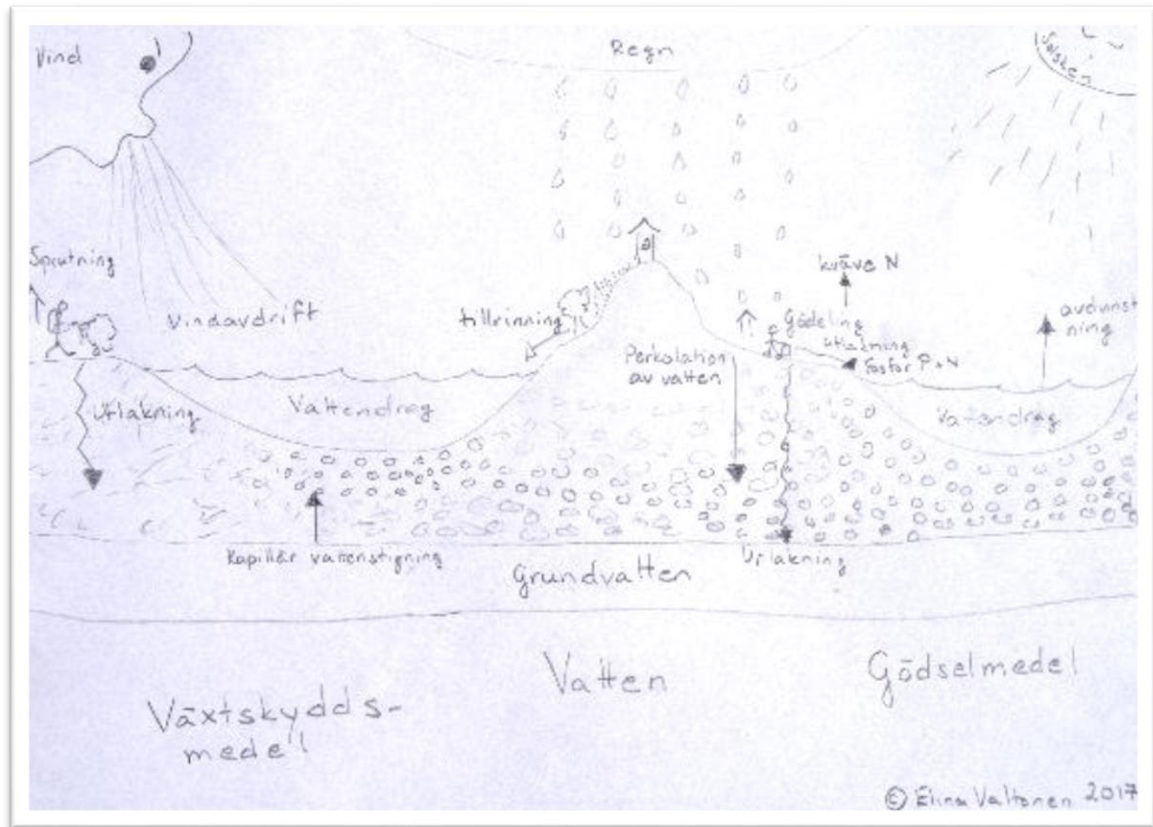 Vind
Regn
Solsken
Sprutning
Vindavdrift
tillrinning
kväve N
Gödsling
Utlakning
fosfor P + N
avdunst
ning
Perkolation
av vatten
Urlakning
Vattendrag
Vattendrag
Kapillär vattenstigning
Urlakning
Grundvatten
Växtskydds-
medel
Vatten
Gödselmedel
© Elina Valtonen 2017